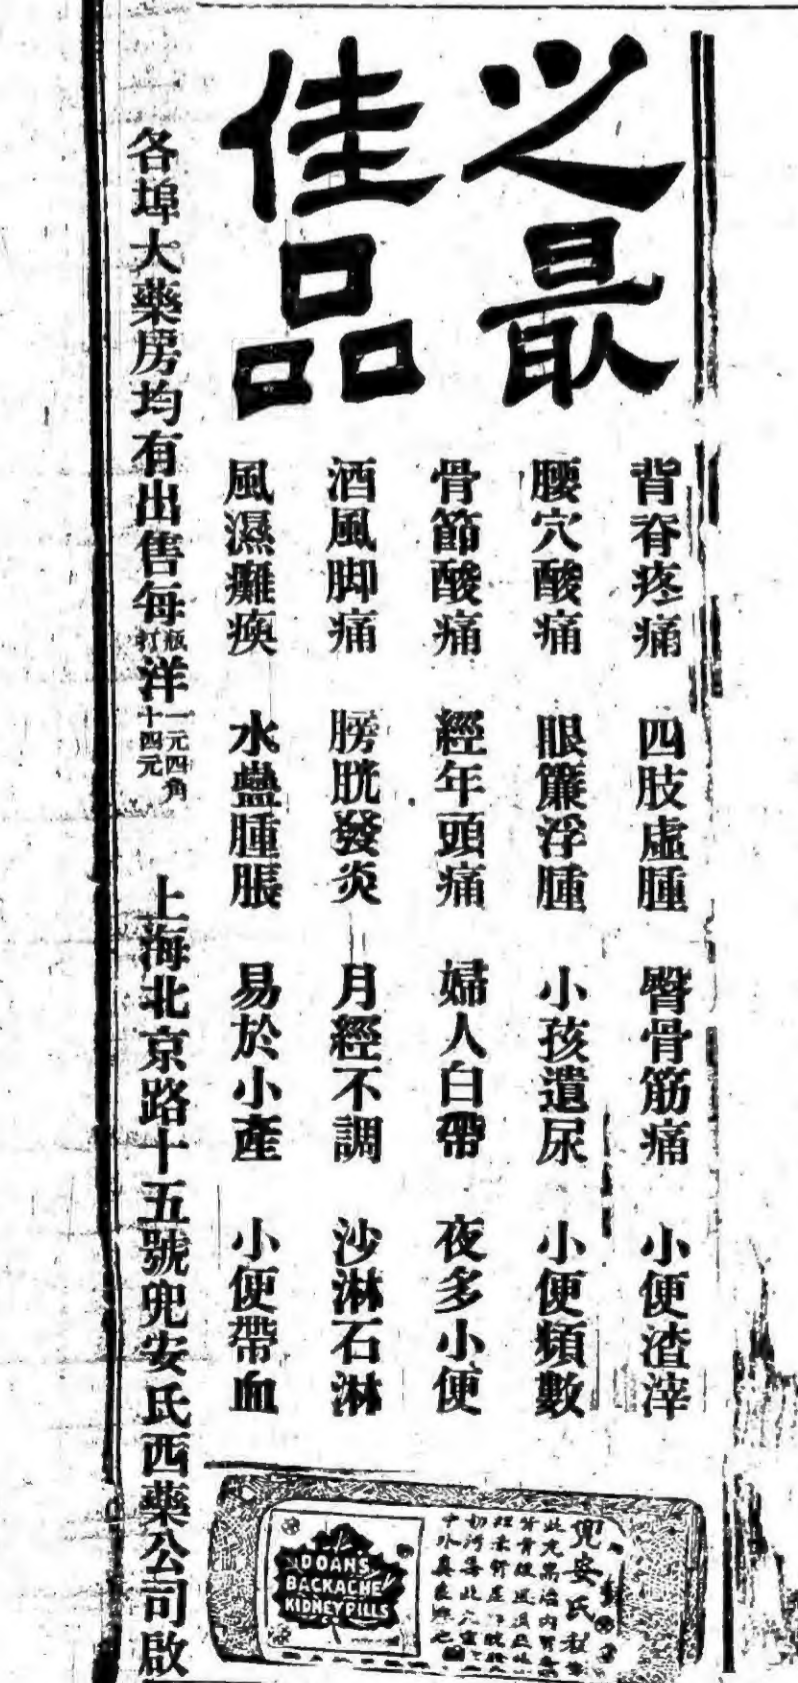 之最
佳品
背脊疼痛 四肢虛腫 臀骨筋痛 小便渣滓
腰穴酸痛 眼簾浮腫 小孩遺尿 小便頻數
骨節酸痛 經年頭痛 婦人白帶 夜多小便
酒風脚痛 膀胱發炎 月經不調 沙淋石淋
風濕癱瘓 水蠱腫脹 易於小產 小便帶血
各埠大藥房均有出售每瓶打洋一元四角十四元 上海北京路十五號兜安氏西藥公司啟
兜安氏
DOAN'S
BACKACHE
KIDNEY PILLS